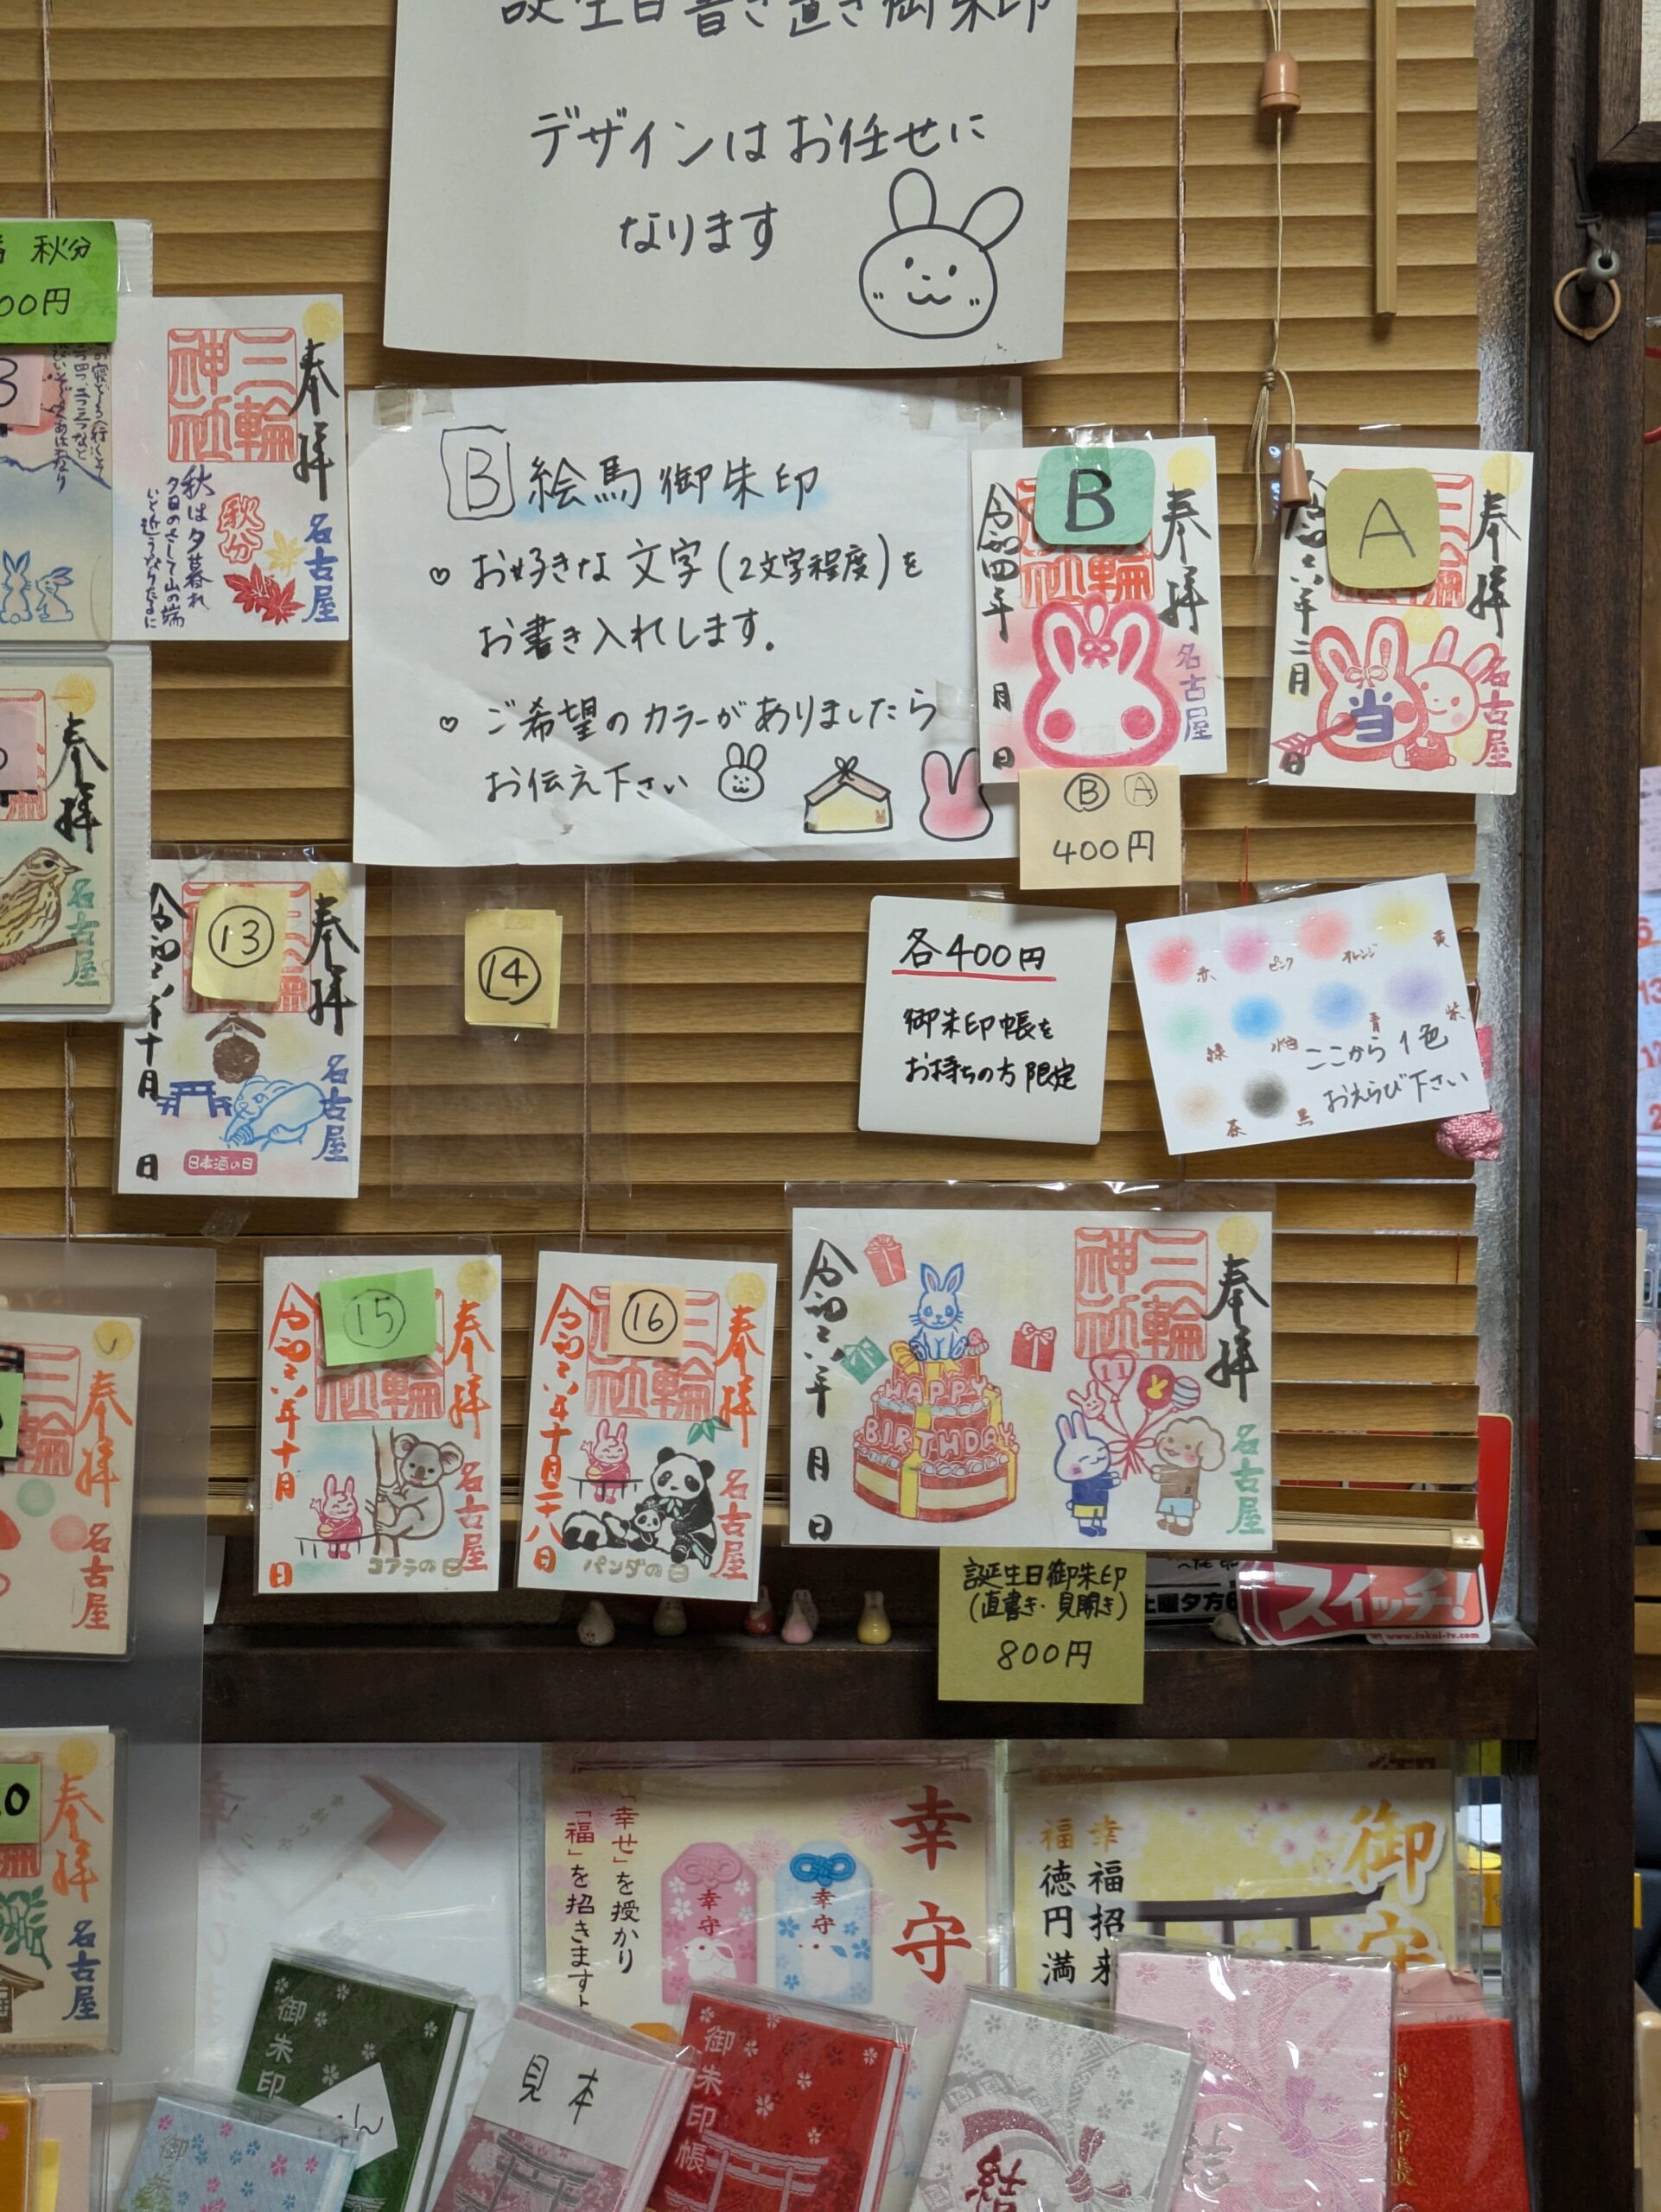 誕生日書き置き御朱印
デザインはお任せに
なります
秋分
00円
奉拝
三輪神社
秋分
名古屋
秋は夕暮れ
夕日のさして山の端
いと近うなりたるに
B 絵馬御朱印
♡ お好きな文字(2文字程度)を
お書き入れします。
♡ ご希望のカラーがありましたら
お伝え下さい
B
奉拝
名古屋
令和四年 月 日
A
奉拝
名古屋
当
令和六年二月 日
Ⓑ Ⓐ
400円
奉拝
名古屋
⑬
奉拝
名古屋
令和六年十月 日
日本酒の日
⑭
各400円
御朱印帳を
お持ちの方限定
赤 ピンク オレンジ 黄
緑 水色 青 紫
茶 黒
ここから1色
おえらび下さい
奉拝
名古屋
⑮
奉拝
名古屋
令和六年十月 日
コアラの日
⑯
奉拝
三輪神社
名古屋
令和六年十月二十八日
パンダの日
奉拝
三輪神社
名古屋
HAPPY
BIRTHDAY
令和六年 月 日
誕生日御朱印
(直書き・見開き)
800円
土曜夕方6
スイッチ!
www.tokai-tv.com
10
奉拝
名古屋
幸守
幸守
幸守
「幸せ」を授かり
「福」を招きます
御守
幸福招来
福徳円満
御朱印
見本
御朱印帳
結
御朱印帳